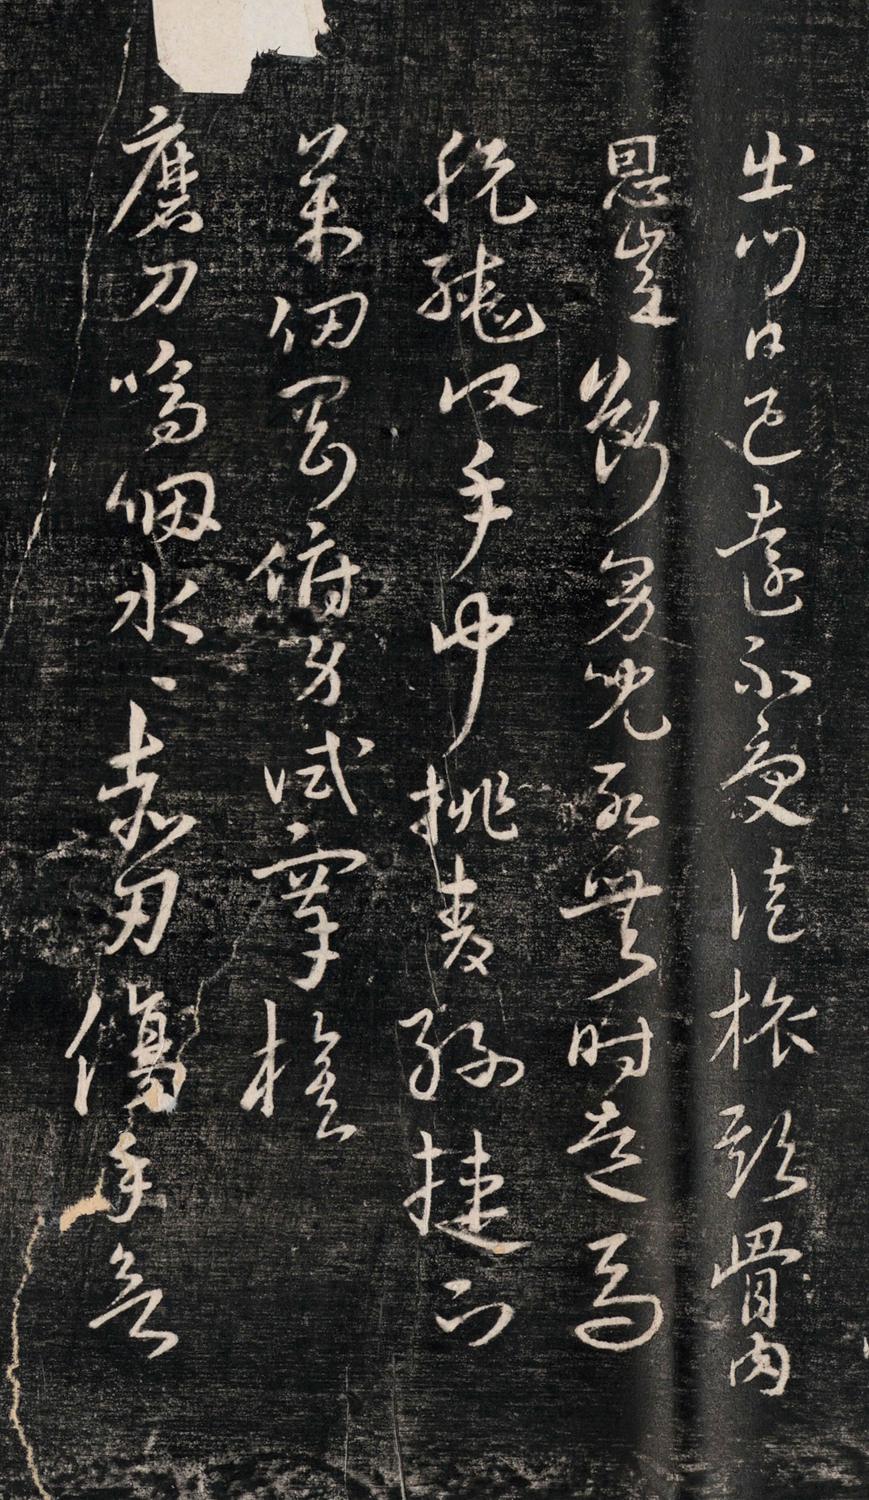 出門日已遠不受徒旅欺骨肉
恩豈斷男兒死無時走馬
脫轡頭手中挑青絲捷下
萬仞岡俯身試搴旗
磨刀嗚咽水〻赤刃傷手欲